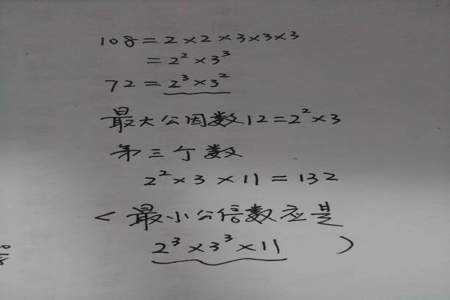 108=2×2×3×3×3
=2²×3³
72=2³×3²
最大公因数12=2²×3
第三个数
2²×3×11=132
<最小公倍数应是
2³×3³×11 )